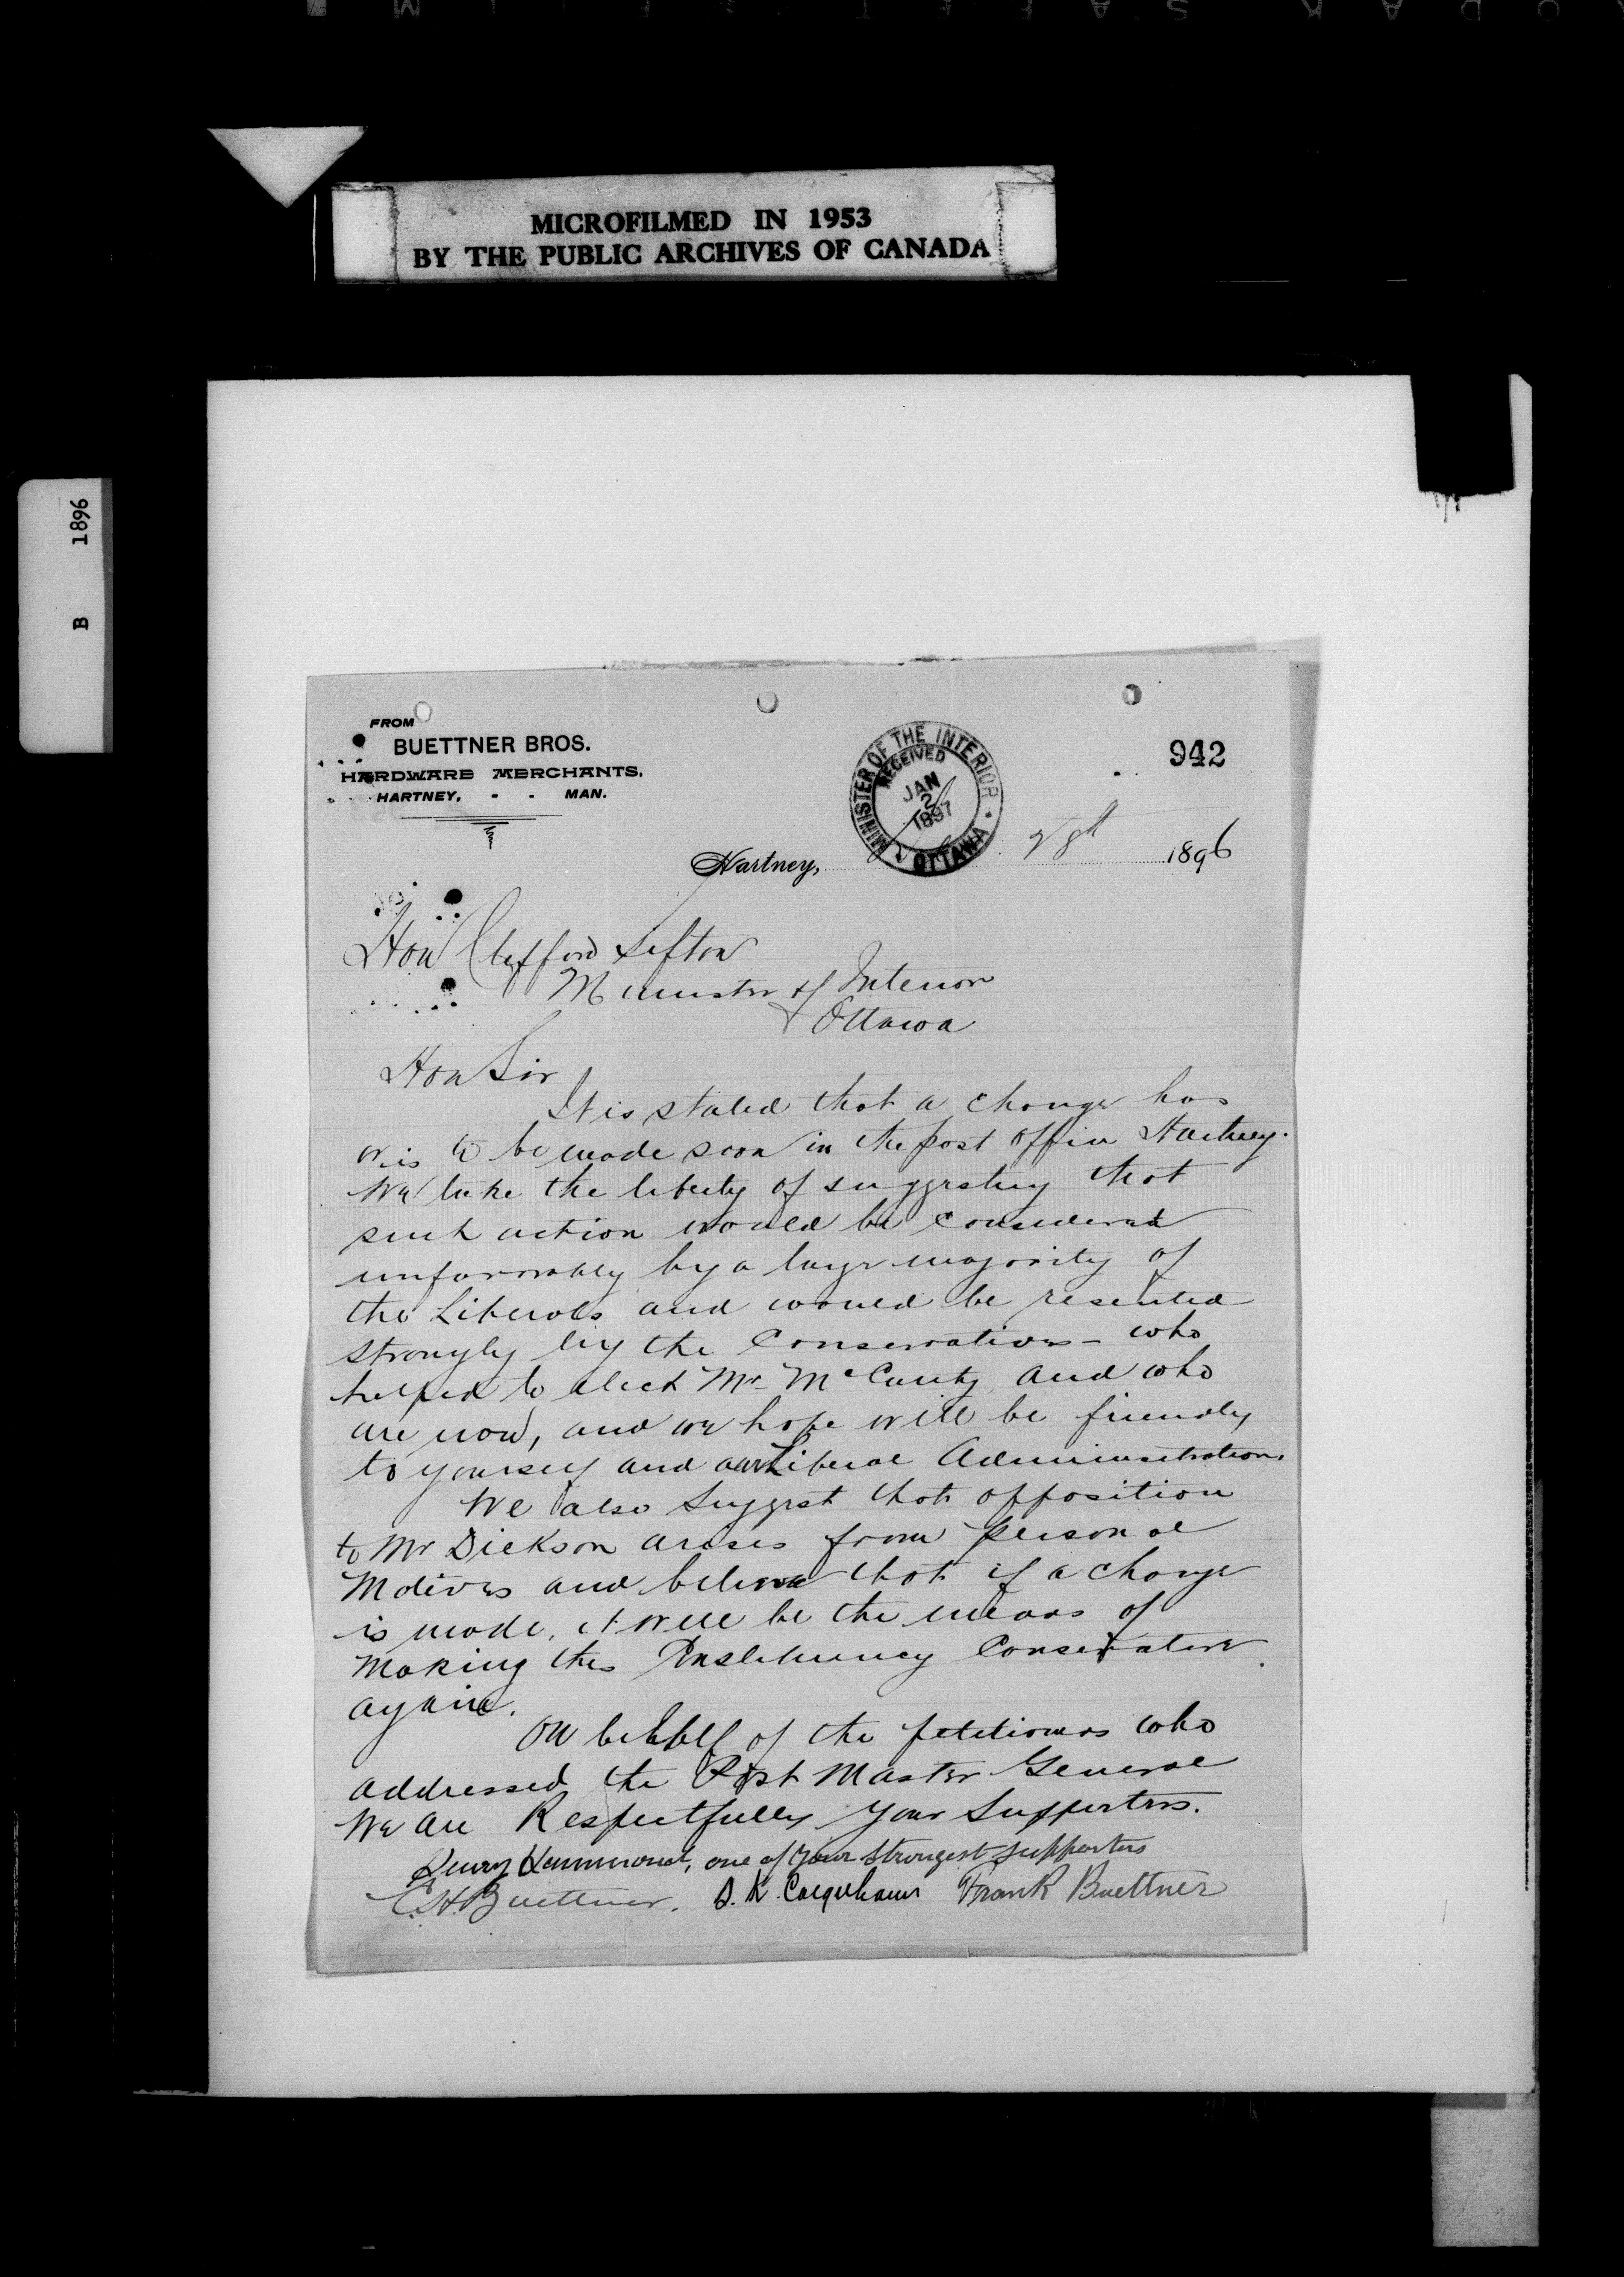 MICROFILMED IN 1953
BY THE PUBLIC ARCHIVES OF CANADA
B 1896
FROM
BUETTNER BROS.
HARDWARE MERCHANTS,
HARTNEY, - - MAN.
MINISTER OF THE INTERIOR
RECEIVED
JAN
2
1897
OTTAWA
942
Hartney, 28th 1896
Hon Clifford Sifton
Minister of Interior
Ottawa
Hon Sir
It is stated that a change has
or is to be made soon in the post office Hartney.
We take the liberty of suggesting that
such action would be considered
unfavorably by a large majority of
the Liberals and would be resented
strongly by the Conservatives - who
helped to elect Mr. McCarthy and who
are now, and we hope will be friendly
to yourself and our Liberal Administration.
We also suggest that opposition
to Mr Dickson arises from personal
Motives and believe that if a change
is made, it will be the means of
Making this Constituency Conservative
again.
On behalf of the petitioners who
addressed the Post Master General
We are Respectfully your Supporters.
Henry Hammond, one of your strongest supporters
E.H. Buettner. D. K. Colquhoun Frank Buettner